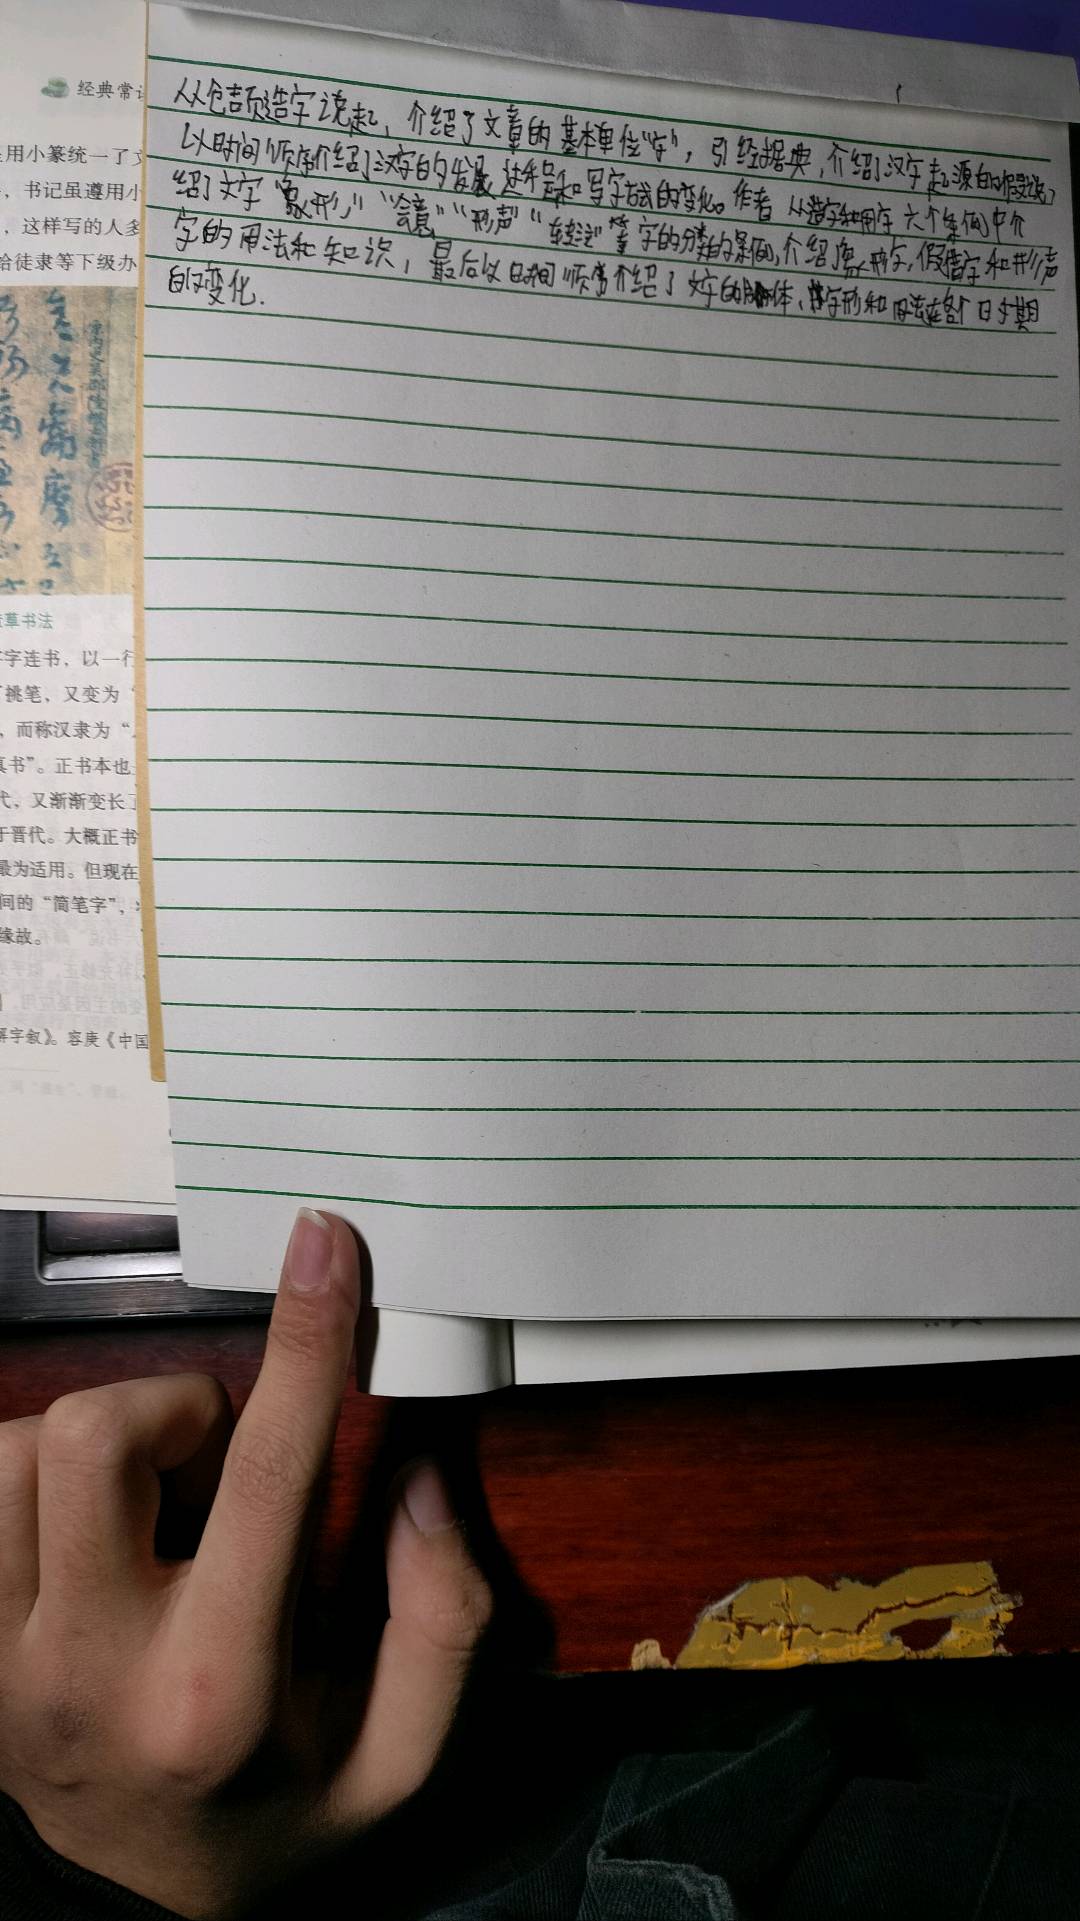 经典常
用小篆统一了文
，书记虽遵用小
，这样写的人多
给徒隶等下级办
草书法
字连书，以一行
挑笔，又变为“
，而称汉隶为“
真书”。正书本也
代，又渐渐变长了
于晋代。大概正书
最为适用。但现在
间的“简笔字”，
缘故。
解字叙》。容庚《中国
从仓颉造字说起，介绍了文章的基本单位“字”，引经据典，介绍了汉字起源的假说，
以时间顺序介绍了汉字的发展过程和写字方式的变化。作者从造字和用字六个条例中介
绍了文字“象形”“会意”“形声”“转注”等字的分类的条例，介绍了象形字，假借字和形声
字的用法和知识，最后以时间顺序介绍了文字的体，字形和用法在各个时期
的变化.